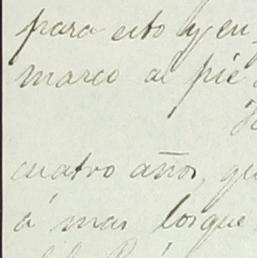 para esto y en
marco al pié
cuatro años, qu
á mas losque